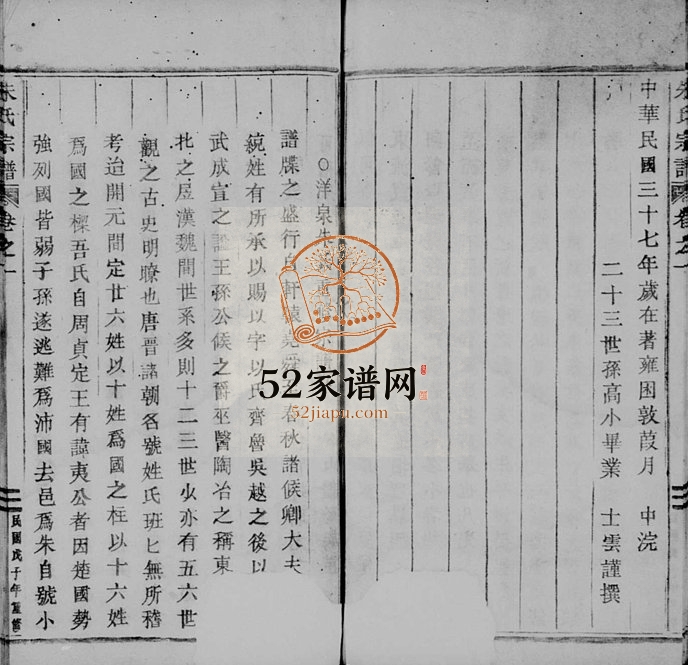 朱氏宗譜 卷之一
中華民國三十七年歲在著雍困敦葭月 中浣
二十三世孫高小畢業 士雲謹撰
○洋泉朱
譜牒之盛行自軒轅堯舜 春秋諸侯卿大夫
統姓有所承以賜以字以氏齊魯吳越之後以
武成宣之謚王孫公候之爵巫醫陶冶之稱東
北之居漢魏間世系多則十二三世少亦有五六世
觀之古史明瞭也唐晋諸朝各號姓氏班匕無所稽
考迨開元間定廿六姓以十姓爲國之柱以十六姓
爲國之樑吾氏自周貞定王有諱夷公者因楚國勢
強列國皆弱子孫遂逃難爲沛國去邑爲朱自號小
朱氏宗譜 卷之一
民國戊子年重修
52家谱网
52jiapu.com